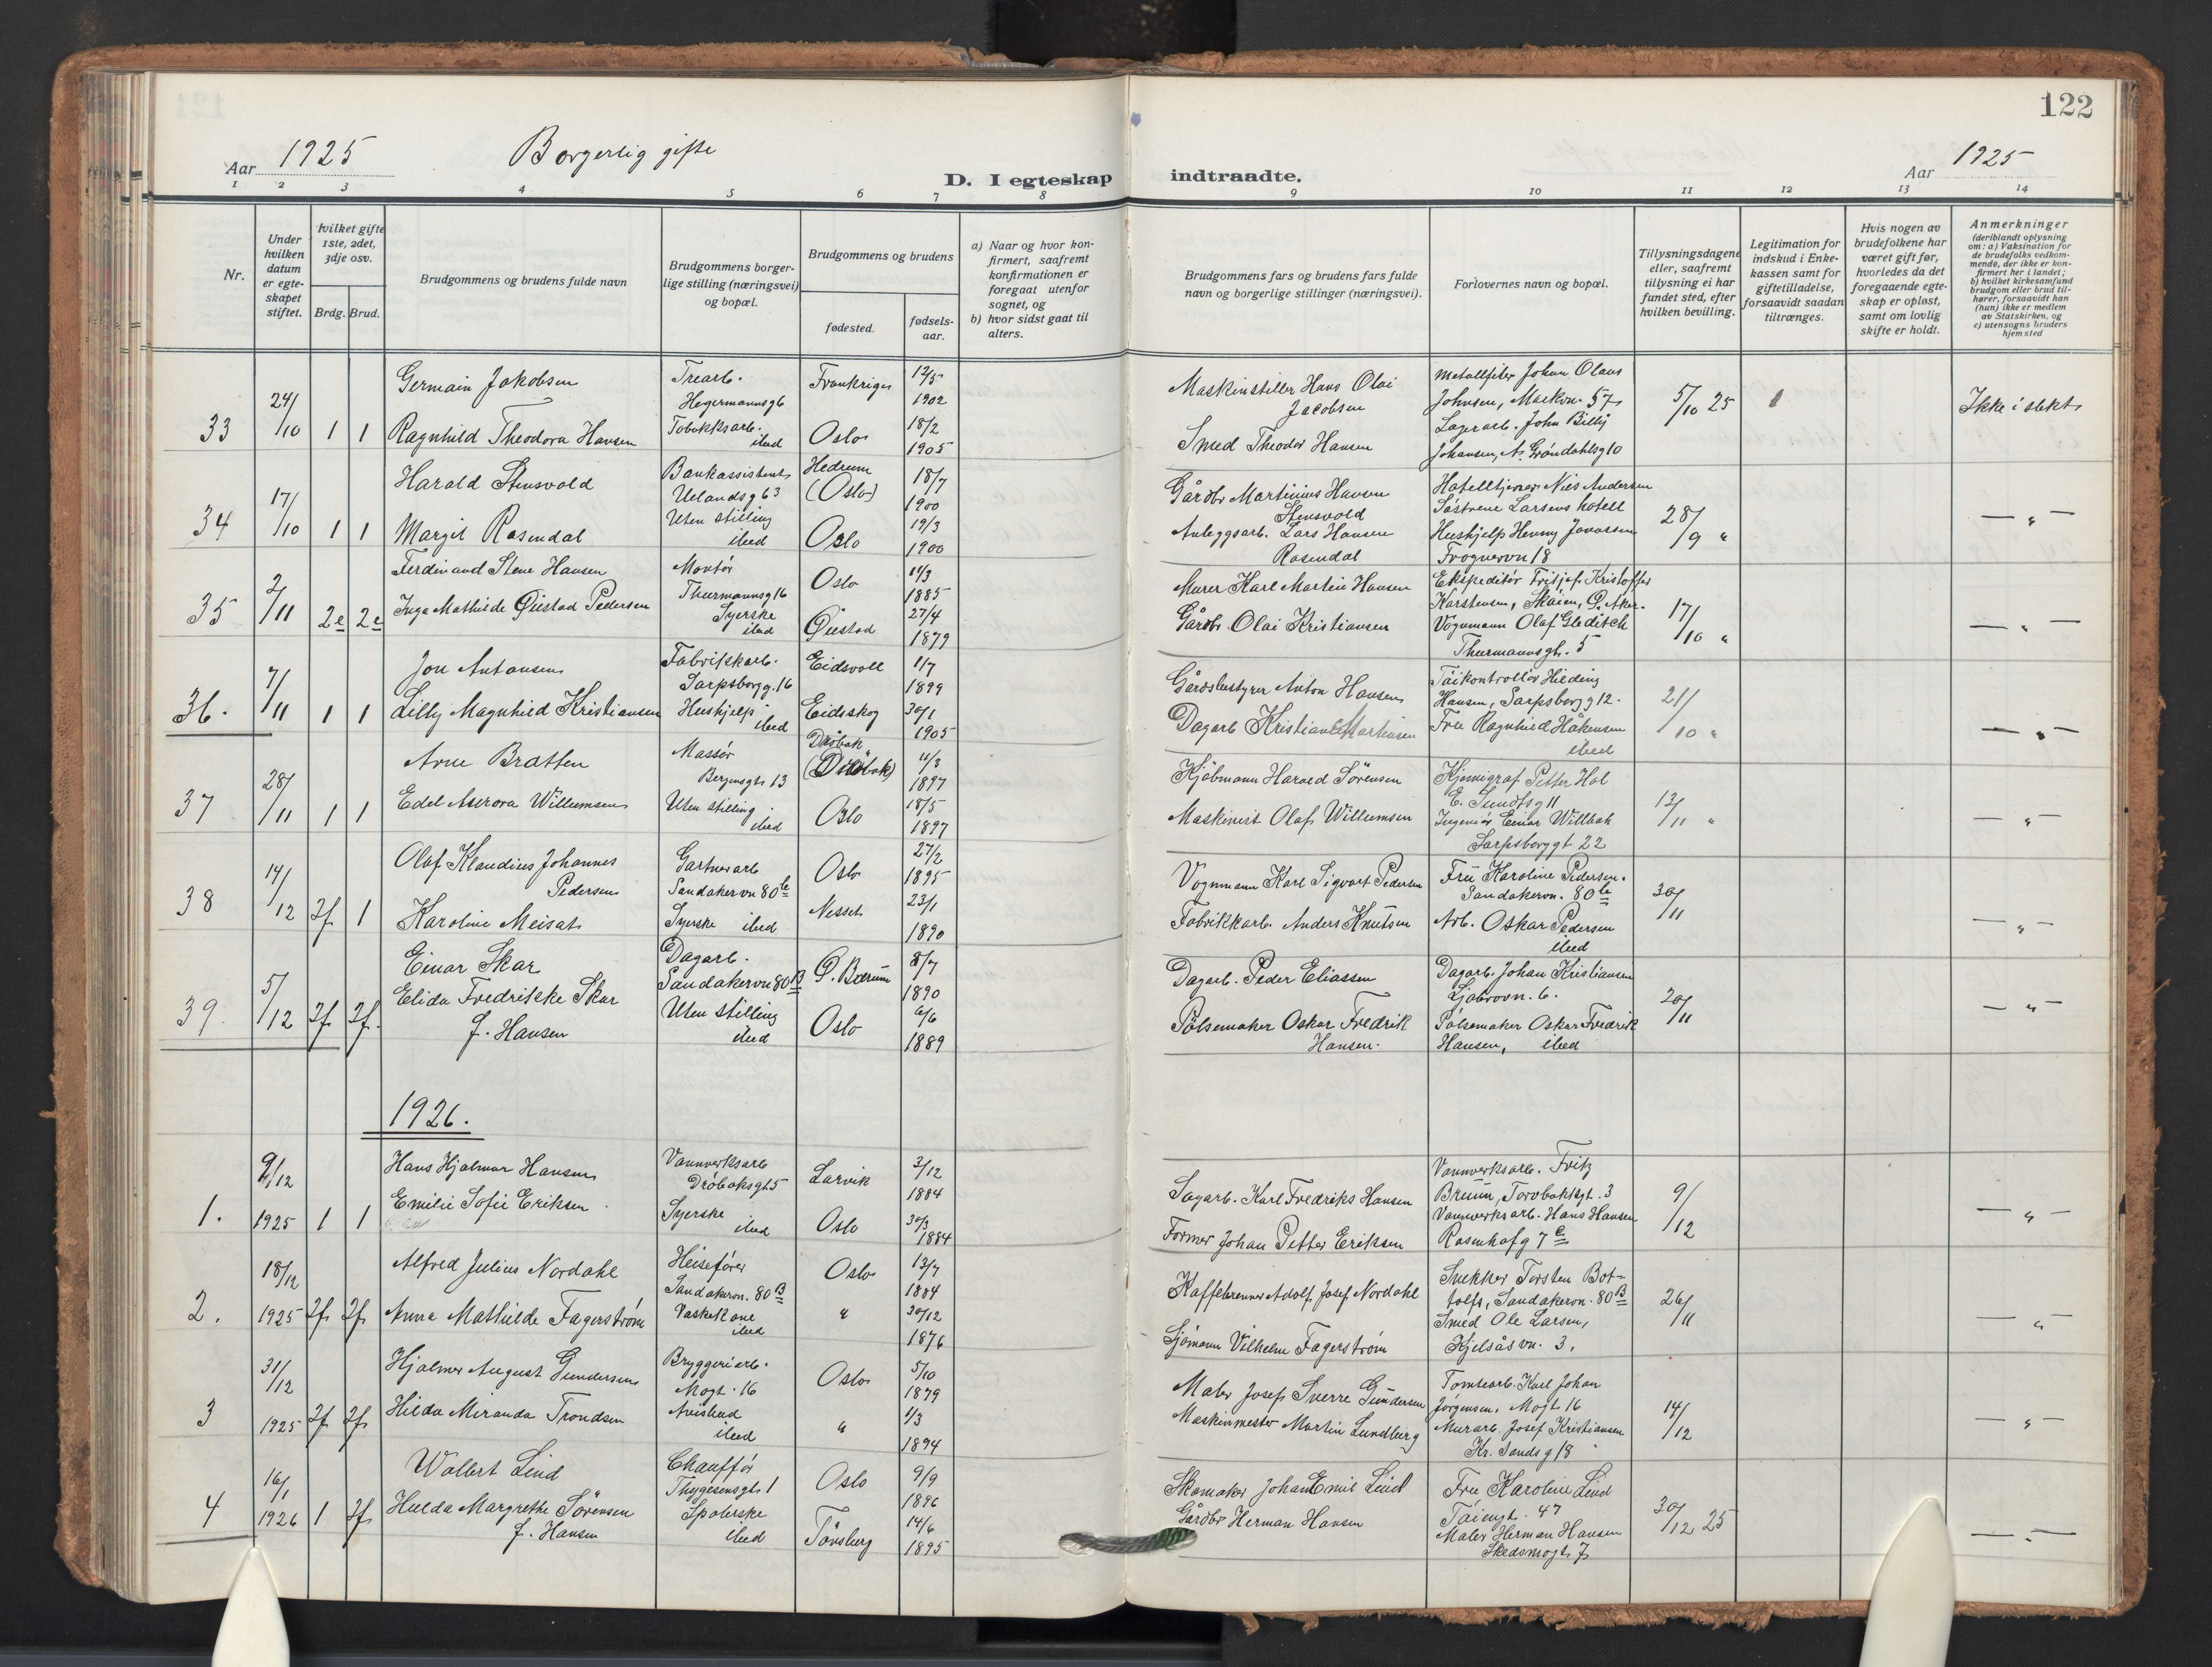 122
Aar 1925
Borgerlig gifte
D. I egteskap indtraadte.
Aar 1925
1 2 3 4 5 6 7 8 9 10 11 12 13 14
Nr.
Under hvilken datum er egteskapet stiftet.
hvilket gifte 1ste, 2det, 3dje osv.
Brdg. Brud.
Brudgommens og brudens fulde navn
Brudgommens borgerlige stilling (næringsvei) og bopæl.
Brudgommens og brudens
fødested.
fødselsaar.
a) Naar og hvor konfirmert, saafremt konfirmationen er foregaat utenfor sognet, og
b) hvor sidst gaat til alters.
Brudgommens fars og brudens fars fulde navn og borgerlige stillinger (næringsvei).
Forlovernes navn og bopæl.
Tillysningsdagene eller, saafremt tillysning ei har fundet sted, efter hvilken bevilling.
Legitimation for indskud i Enkekassen samt for giftetilladelse, forsaavidt saadan tiltrænges.
Hvis nogen av brudefolkene har været gift før, hvorledes da det foregaaende egteskap er opløst, samt om lovlig skifte er holdt.
Anmerkninger
(deriblandt oplysning om: a) Vaksination for de brudefolks vedkommende, der ikke er konfirmert her i landet; b) hvilket kirkesamfund brudgom eller brud tilhører, forsaavidt han (hun) ikke er medlem av Statskirken, og c) utensogns bruders hjemsted
33 24/10 1 1
Germain Jakobsen Trearb. Hegermannsg 6 Frankrige 12/5 1902
Ragnhild Theodora Hansen Tobakksarb. ibid Oslo 18/2 1905
Maskinstiller Hans Olai Jacobsen
Smed Theodor Hansen
Metallfiler Johan Olaus
Johnsen, Markvn. 57
Lagerarb. John Billy
Johansen, N. Grøndahlsg 10
5/10 25
Ikke i slekt
34 17/10 1 1
Harald Stensvold Bankassistent Uelandsg 63 Hedrum (Oslo) 18/7 1900
Margit Rosendal Uten stilling ibid Oslo 19/3 1900
Gårdbr Martinius Hansen Stensvold
Anleggsarb. Lars Hansen Rosendal
Hotelltjener Nils Andersen
Søstrene Larsens hotell
Hushjelp Henny Jonassen
Frognervn 18
28/9 "
— " —
35 2/11 2e 2e
Ferdinand Stene Hansen Montør Thurmannsg 16 Oslo 14/3 1885
Inga Mathilde Øiestad Pedersen Syerske ibid Øiestad 27/4 1879
Murer Karl Martin Hansen
Gårdbr. Olai Kristiansen
Ekspeditør Fritjof Kristoffer
Karstensen, Skøien, Ø. Aker.
Vognmann Olaf Gleditch
Thurmannsgt. 5
17/10 "
— " —
36. 7/11 1 1
Jon Antonsen Fabrikkarb. Sarpsborgg. 16 Eidsvoll 1/7 1899
Lilly Magnhild Kristiansen Hushjelp ibid Eidskog 30/1 1905
Gårdsbestyrer Anton Hansen
Dagarb Kristian Martinsen
Tøikontrollør Hilding
Hansen, Sarpsborgg 12.
Fru Ragnhild Håkensen
ibid
21/10 "
— " —
37 28/11 1 1
Arne Bratten Massør Bergensgt. 13 Drøbak (Drøbak) 11/3 1897
Edel Aurora Willumsen Uten stilling. ibid Oslo 18/5 1897
Kjøbmann Harald Sørensen
Maskinist Olaf Willumsen
Kjemigraf Petter Hol
E. Sundtsg 11
Ingeniør Einar Willbak
Sarpsborggt 22
13/11 "
— " —
38 14/12 2f 1
Olaf Klaudius Johannes Pedersen Gartnerarb Sandakervn 80 b Oslo 27/2 1895
Karoline Meisat Syerske ibid Nesset 23/1 1890
Vognmann Karl Sigvart Pedersen
Fabrikkarb. Anders Knutsen
Fru Karoline Pedersen.
Sandakervn. 80 b
Arb. Oskar Pedersen
ibid
30/11
— " —
39. 5/12 2f 2f.
Einar Skar Dagarb. Sandakervn 80 B Ø. Bærum 8/7 1890
Elida Fredrikke Skar f. Hansen Uten stilling ibid Oslo 6/6 1889
Dagarb. Peder Eliassen
Pølsemaker Oskar Fredrik Hansen.
Dagarb. Johan Kristiansen
Ljabrovn. 6.
Pølsemaker Oskar Fredrik
Hansen, ibid
20/11
— " —
1926.
1. 9/12 1925 1 1
Hans Hjalmar Hansen Vannverksarb Drøbaksgt 5 Larvik 3/12 1884
Emilie Sofie Eriksen Syerske ibid Oslo 30/3 1884
Sagarb. Karl Fredriks Hansen
Former Johan Petter Eriksen
Vannverksarb. Fritz
Bruun, Torvbakkgt. 3
Vannverksarb. Hans Hansen
Rosenhofg 7 c
9/12
— " —
2. 18/12 1925 2f 2f
Alfred Julius Nordahl Heisefører Sandakervn. 80 B Oslo 13/7 1884
Anna Mathilde Fagerstrøm Vaskekone ibid " 30/12 1876
Kaffebrenner Adolf Josef Nordahl
Sjømann Vilhelm Fagerstrøm
Snekker Torsten Bottolfs, Sandakervn. 80 B
Smed Ole Larsen,
Kjelsåsvn. 3.
26/11
— " —
3 31/12 1925 2f 2f
Hjalmar August Gundersen Bryggeriarb. Mogt. 16 Oslo 5/10 1879
Hilda Miranda Trondsen Avisbud ibid " 1/3 1894
Maler Josef Sverre Gundersen
Maskinmester Martin Lundberg
Tomtearb. Karl Johan
Jørgensen. Mogt 16
Murarb. Josef Kristiansen
Kr. Sandsg 18
14/12
— " —
4 16/1 1926 1 2f
Wallert Lind Chauffør Thygesensgt. 1 Oslo 9/9 1896
Hulda Margrethe Sørensen f. Hansen Spolerske ibid Tønsberg 14/6 1895
Skomaker Johan Emil Lind
Gårdbr Herman Hansen
Fru Karoline Lind
Tøiengt. 47
Maler Herman Hansen
Skedsmogt. 7
30/12 25
— " —